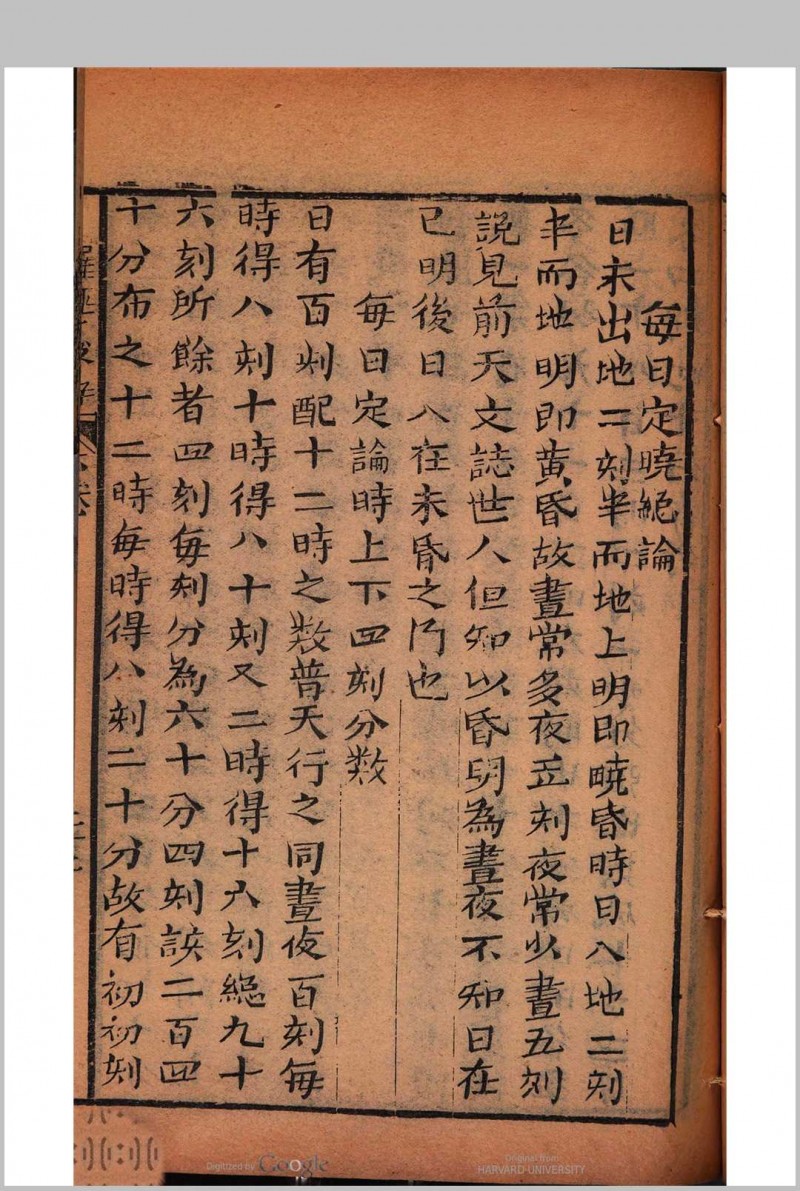 每日定曉絕論
日未出地二刻半而地上明即曉昏時日入地二刻
半而地明即黃昏故晝常多夜五刻夜常少晝五刻
說見前天文誌世人但知以昏明為晝夜不知日在
已明後日入在未昏之門也
每日定論時上下四刻分数
日有百刻配十二時之数普天行之同晝夜百刻每
時得八刻十時得八十刻又二時得十六刻縂九十
六刻所餘者四刻每刻分為六十分四刻該二百四
十分布之十二時每時得八刻二十分故有初初刻
Digitized by Google
Original from
HARVARD UNIVERSITY